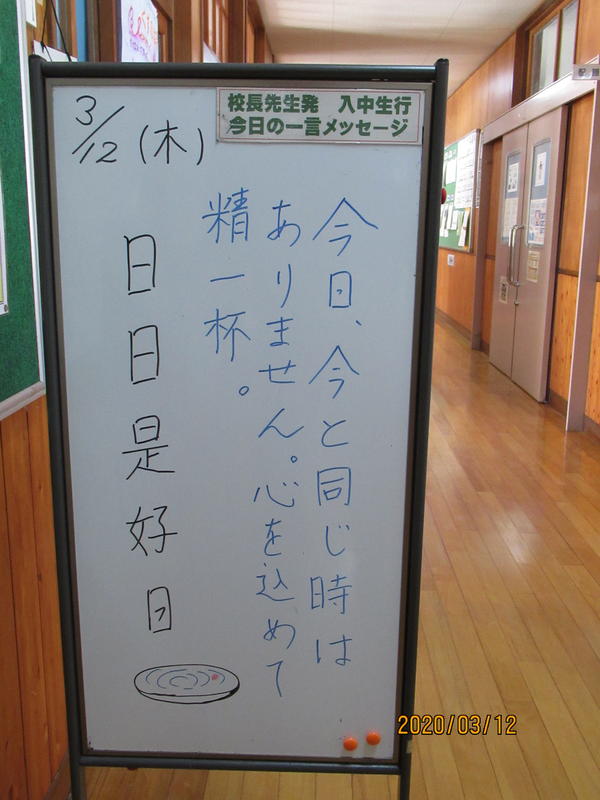 校長先生発 入中生行
今日の一言メッセージ
3/12(木)
今日、今と同じ時は
ありません。心を込めて
精一杯。
日日是好日
2020/03/12